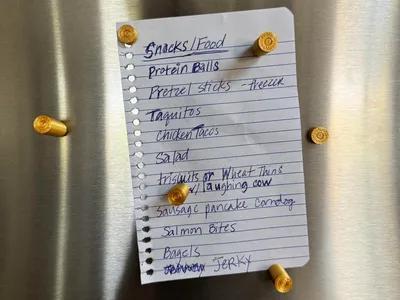 Snacks/Food
Protein Balls
Pretzel sticks - freezer
Taquitos
Chicken Tacos
Salad
triscuits or Wheat Thins
w/ laughing cow
Sausage pancake Corndog
Salmon Bites
Bagels
JERKY